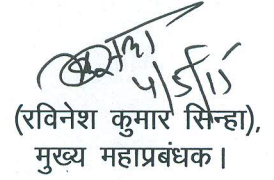 (रविनेश कुमार सिन्हा),
मुख्य महाप्रबंधक।